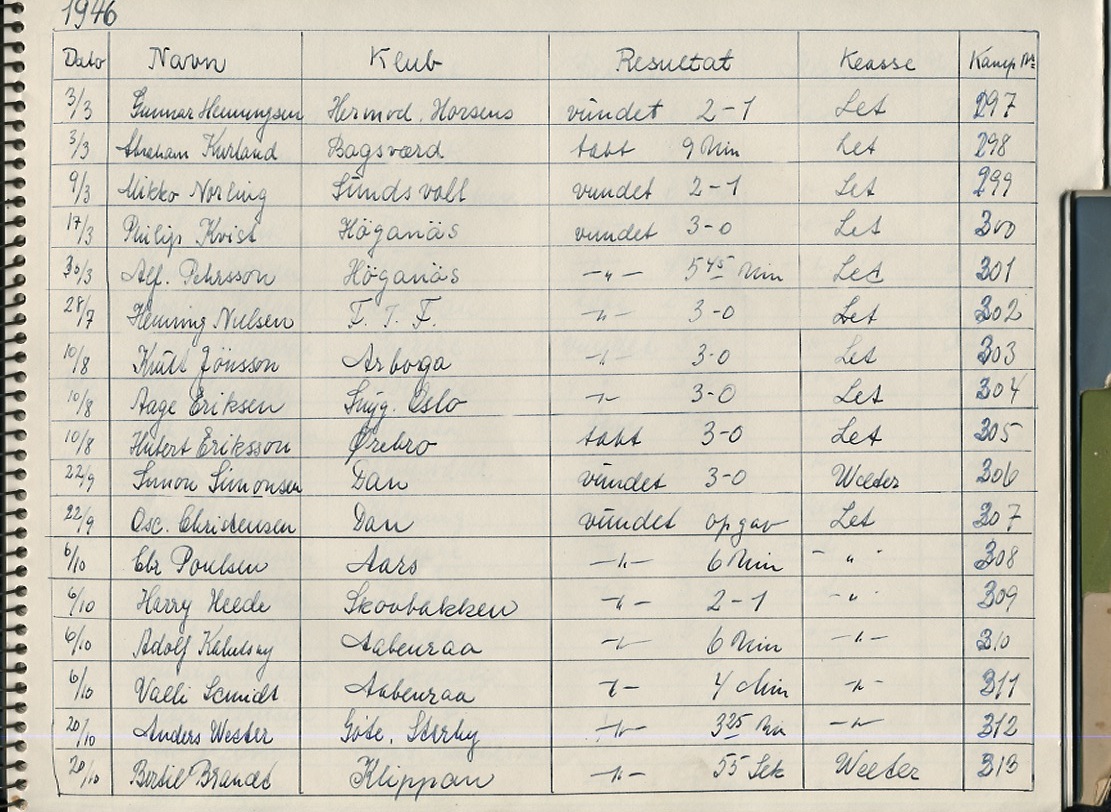 1946
Dato Navn Klub Resultat Klasse Kamp Nr
3/3 Gunnar Henningsen Hermod, Horsens vundet 2-1 Let 297
3/3 Abraham Kurland Bagsværd tabt 9 Min Let 298
9/3 Mikko Norling Sundsvall vundet 2-1 Let 299
17/3 Philip Kvist Höganäs vundet 3-0 Let 300
30/3 Alf. Pehrsson Höganäs -"- 5 45 Min Let 301
28/7 Henning Nielsen F. T. F. -"- 3-0 Let 302
10/8 Knutt Jönsson Arboga -"- 3-0 Let 303
10/8 Aage Eriksen Oslo -"- 3-0 Let 304
10/8 Hubert Eriksson Ørebro tabt 3-0 Let 305
22/9 Simon Simonsen Dan vundet 3-0 Welter 306
22/9 Osc. Christensen Dan vundet opgav Let 307
6/10 Ebr Poulsen Aars -"- 6 Min -"- 308
6/10 Harry Heede Skovbakken -"- 2-1 -"- 309
6/10 Adolf Aabenraa -"- 6 Min -"- 310
6/10 Valli Scmidt Aabenraa -"- 4 Min -"- 311
20/10 Anders Wester Göte. -"- 3 25 Min -"- 312
20/10 Bertil Brandt Klippan -"- 55 Sek Welter 313